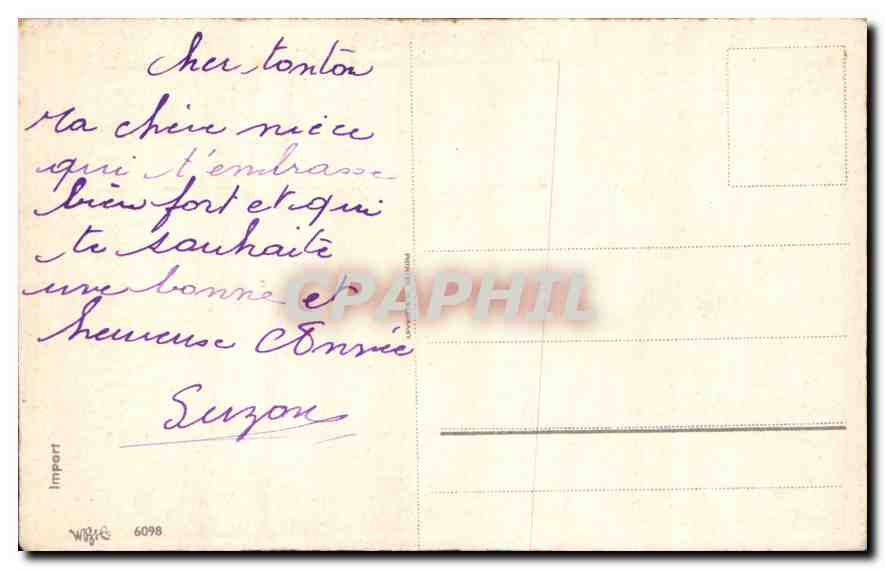 cher tonton
ta chère nièce
qui t'embrasse
bien fort et qui
te souhaite
une bonne et
heureuse Année
Suzon
CPAPHIL
Import
6098